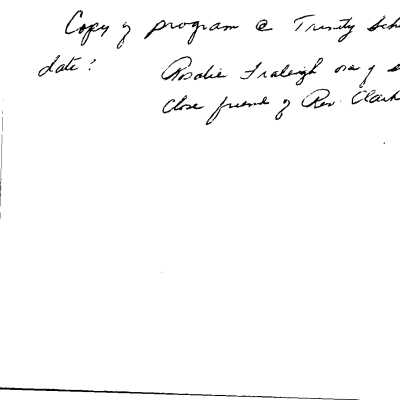 Copy of program @ Trinity Sch
date? Rosalie Fraleigh one of s
Close friend of Rev. Clark